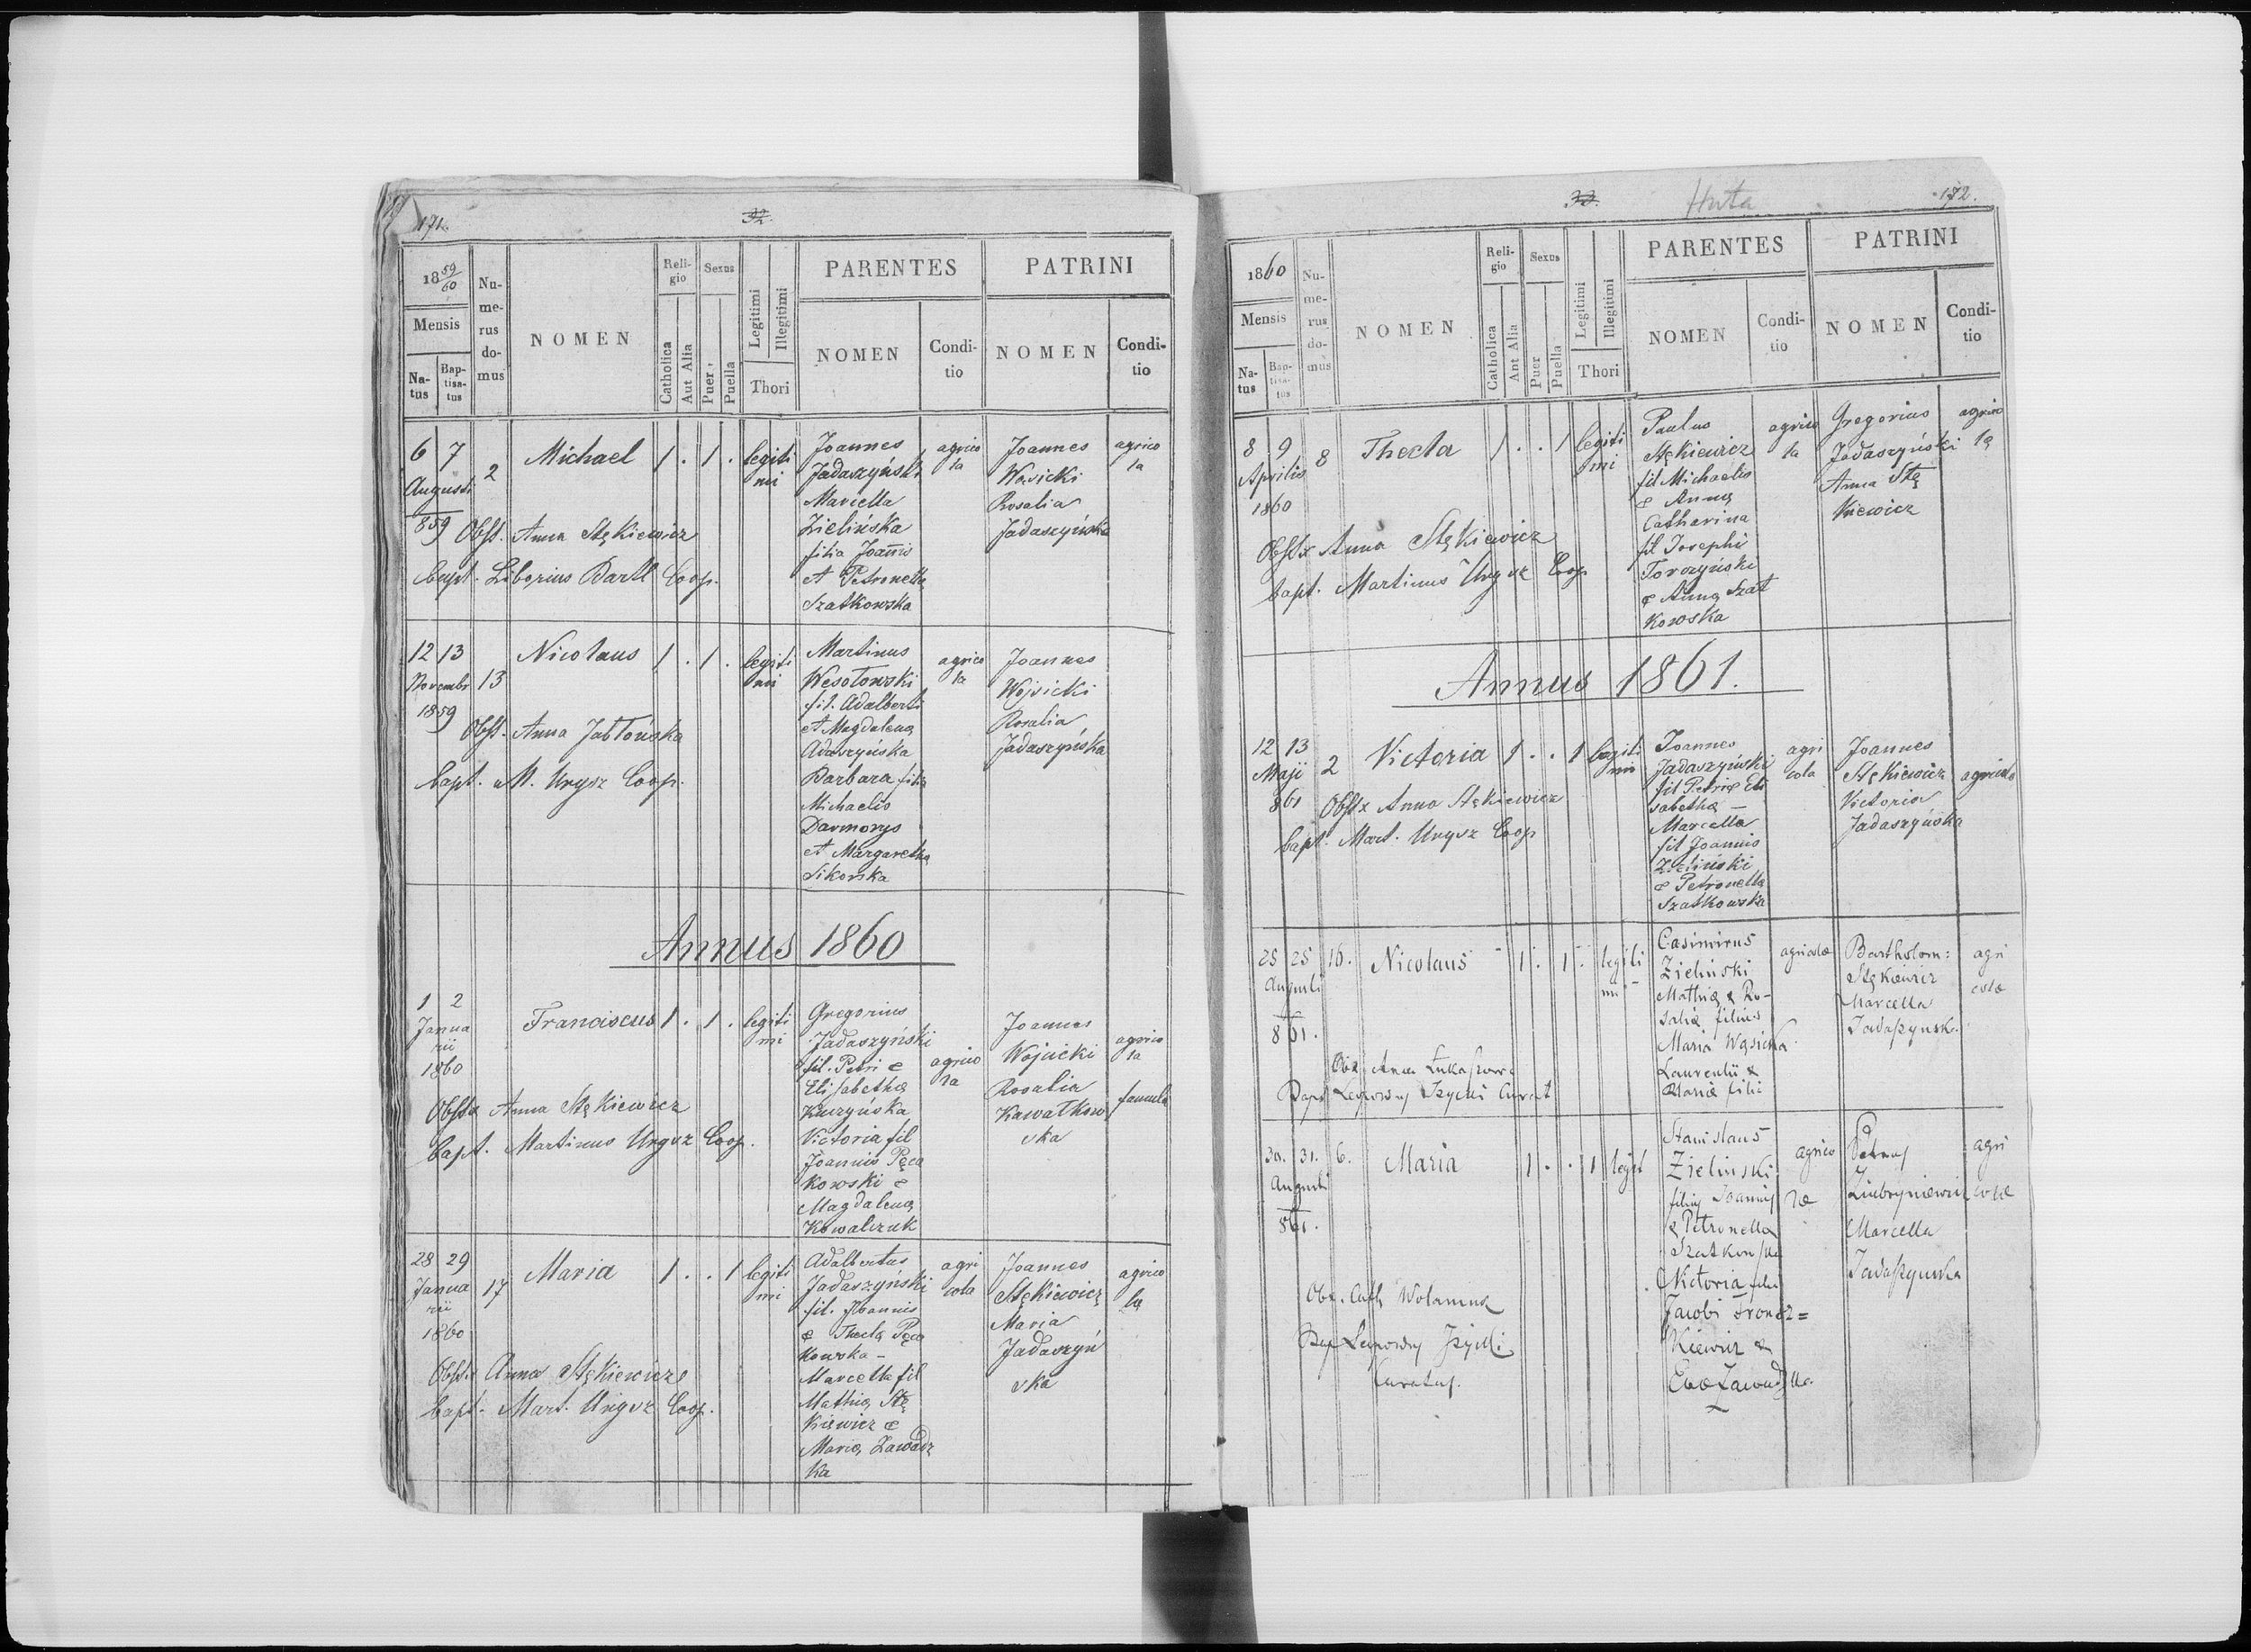 171.
32.
18 59/60
Mensis
Na-
tus
Bap-
tisa-
tus
Nu-
me-
rus
do-
mus
NOMEN
Reli-
gio
Catholica
Aut Alia
Sexus
Puer
Puella
Legitimi
Illegitimi
Thori
PARENTES
NOMEN
Condi-
tio
PATRINI
NOMEN
Condi-
tio
6 7
Augusti
859
2
Michael 1 . 1 . legiti
mi
Joannes
Jadaszyński
Marcella
Zielińska
filia Joannis
et Petronella
Szatkowska
agrico
la
Joannes
Wasicki
Rosalia
Jadaszyńska
agrico
la
Obst. Anna Stękiewicz
bapt. Liborius Bartl Coop.
12 13
Novembr
1859
13
Nicolaus 1 . 1 . legiti
mi
Martinus
Wesołowski
fil. Adalberti
et Magdalena
Adaszyńska
Barbara filia
Michaelis
Darmorys
et Margaretha
Sikorska
agrico
la
Joannes
Wojsicki
Rosalia
Jadaszyńska
Obst. Anna Jabłońska
bapt. M. Urysz Coop.
Annus 1860
1 2
Janua
rii
1860
Franciscus 1 . 1 . legiti
mi
Gregorius
Jadaszyński
fil. Petri &
Elisabetha
Kuczyńska
Victoria fil
Joannis Pęca
kowski &
Magdalena
Kowalczuk
agrico
la
Joannes
Wojcicki
Rosalia
Kawałkow
ska
agrico
la
famula
Obstx Anna Stękiewicz
bapt. Martinus Urysz Coop.
28 29
Janua
rii
1860
17
Maria 1 . . 1 legiti
mi
Adalbertus
Jadaszyński
fil. Joannis
& Thecla Pęca
kowska -
Marcella fil
Mathia Stę
kiewicz &
Maria Zawadz
ka
agri
cola
Joannes
Stękiewicz
Maria
Jadaszyń
ska
agrico
la
Obstx Anna Stękiewicz
bapt. Mart. Urysz Coop.
33.
Huta
172.
1860
Mensis
Na-
tus
Bap-
tisa-
tus
Nu-
me-
rus
do-
mus
NOMEN
Reli-
gio
Catholica
Aut Alia
Sexus
Puer
Puella
Legitimi
Illegitimi
Thori
PARENTES
NOMEN
Condi-
tio
PATRINI
NOMEN
Condi-
tio
8 9
Aprilis
1860
8
Thecla 1 . . 1 legiti
mi
Paulus
Stękiewicz
fil Michaelis
& Anna
Catharina
fil Josephi
Torczyński
& Anna Szat
kowska
agrico
la
Gregorius
Jadaszyński
Anna Stę
kiewicz
agrico
la
Obstx Anna Stękiewicz
bapt. Martinus Urysz Coop
Annus 1861.
12 13
Maji
861
2
Victoria 1 . . 1 legiti
mi
Joannes
Jadaszyński
fil Petri & Eli
sabetha -
Marcella
fil Joannis
Zieliński
& Petronella
Szatkowska
agri
cola
Joannes
Stękiewicz
Victoria
Jadaszyńska
agricola
Obstx Anna Stękiewicz
bapt. Mart. Urysz Coop
25 25
Augusti
861.
16.
Nicolaus 1 . 1 . legiti
mi
Casimirus
Zieliński
Mathia & Ro-
salia filius
Maria Wąsicka
Laurentii &
Maria filia
agricolæ
Bartholom:
Stękiewicz
Marcella
agri
colæ
Obx Anna
Bapt Curat
30. 31.
Augusti
861.
6.
Maria 1 . . 1 legit
Stanislaus
Zieliński
filius Joannis
& Petronella
Victoria filia
Jacobi
Kiewicz &
agrico
læ
Petrus
Marcella
Jadaszyńska
agri
colæ
Obx. Cath
Curatus.